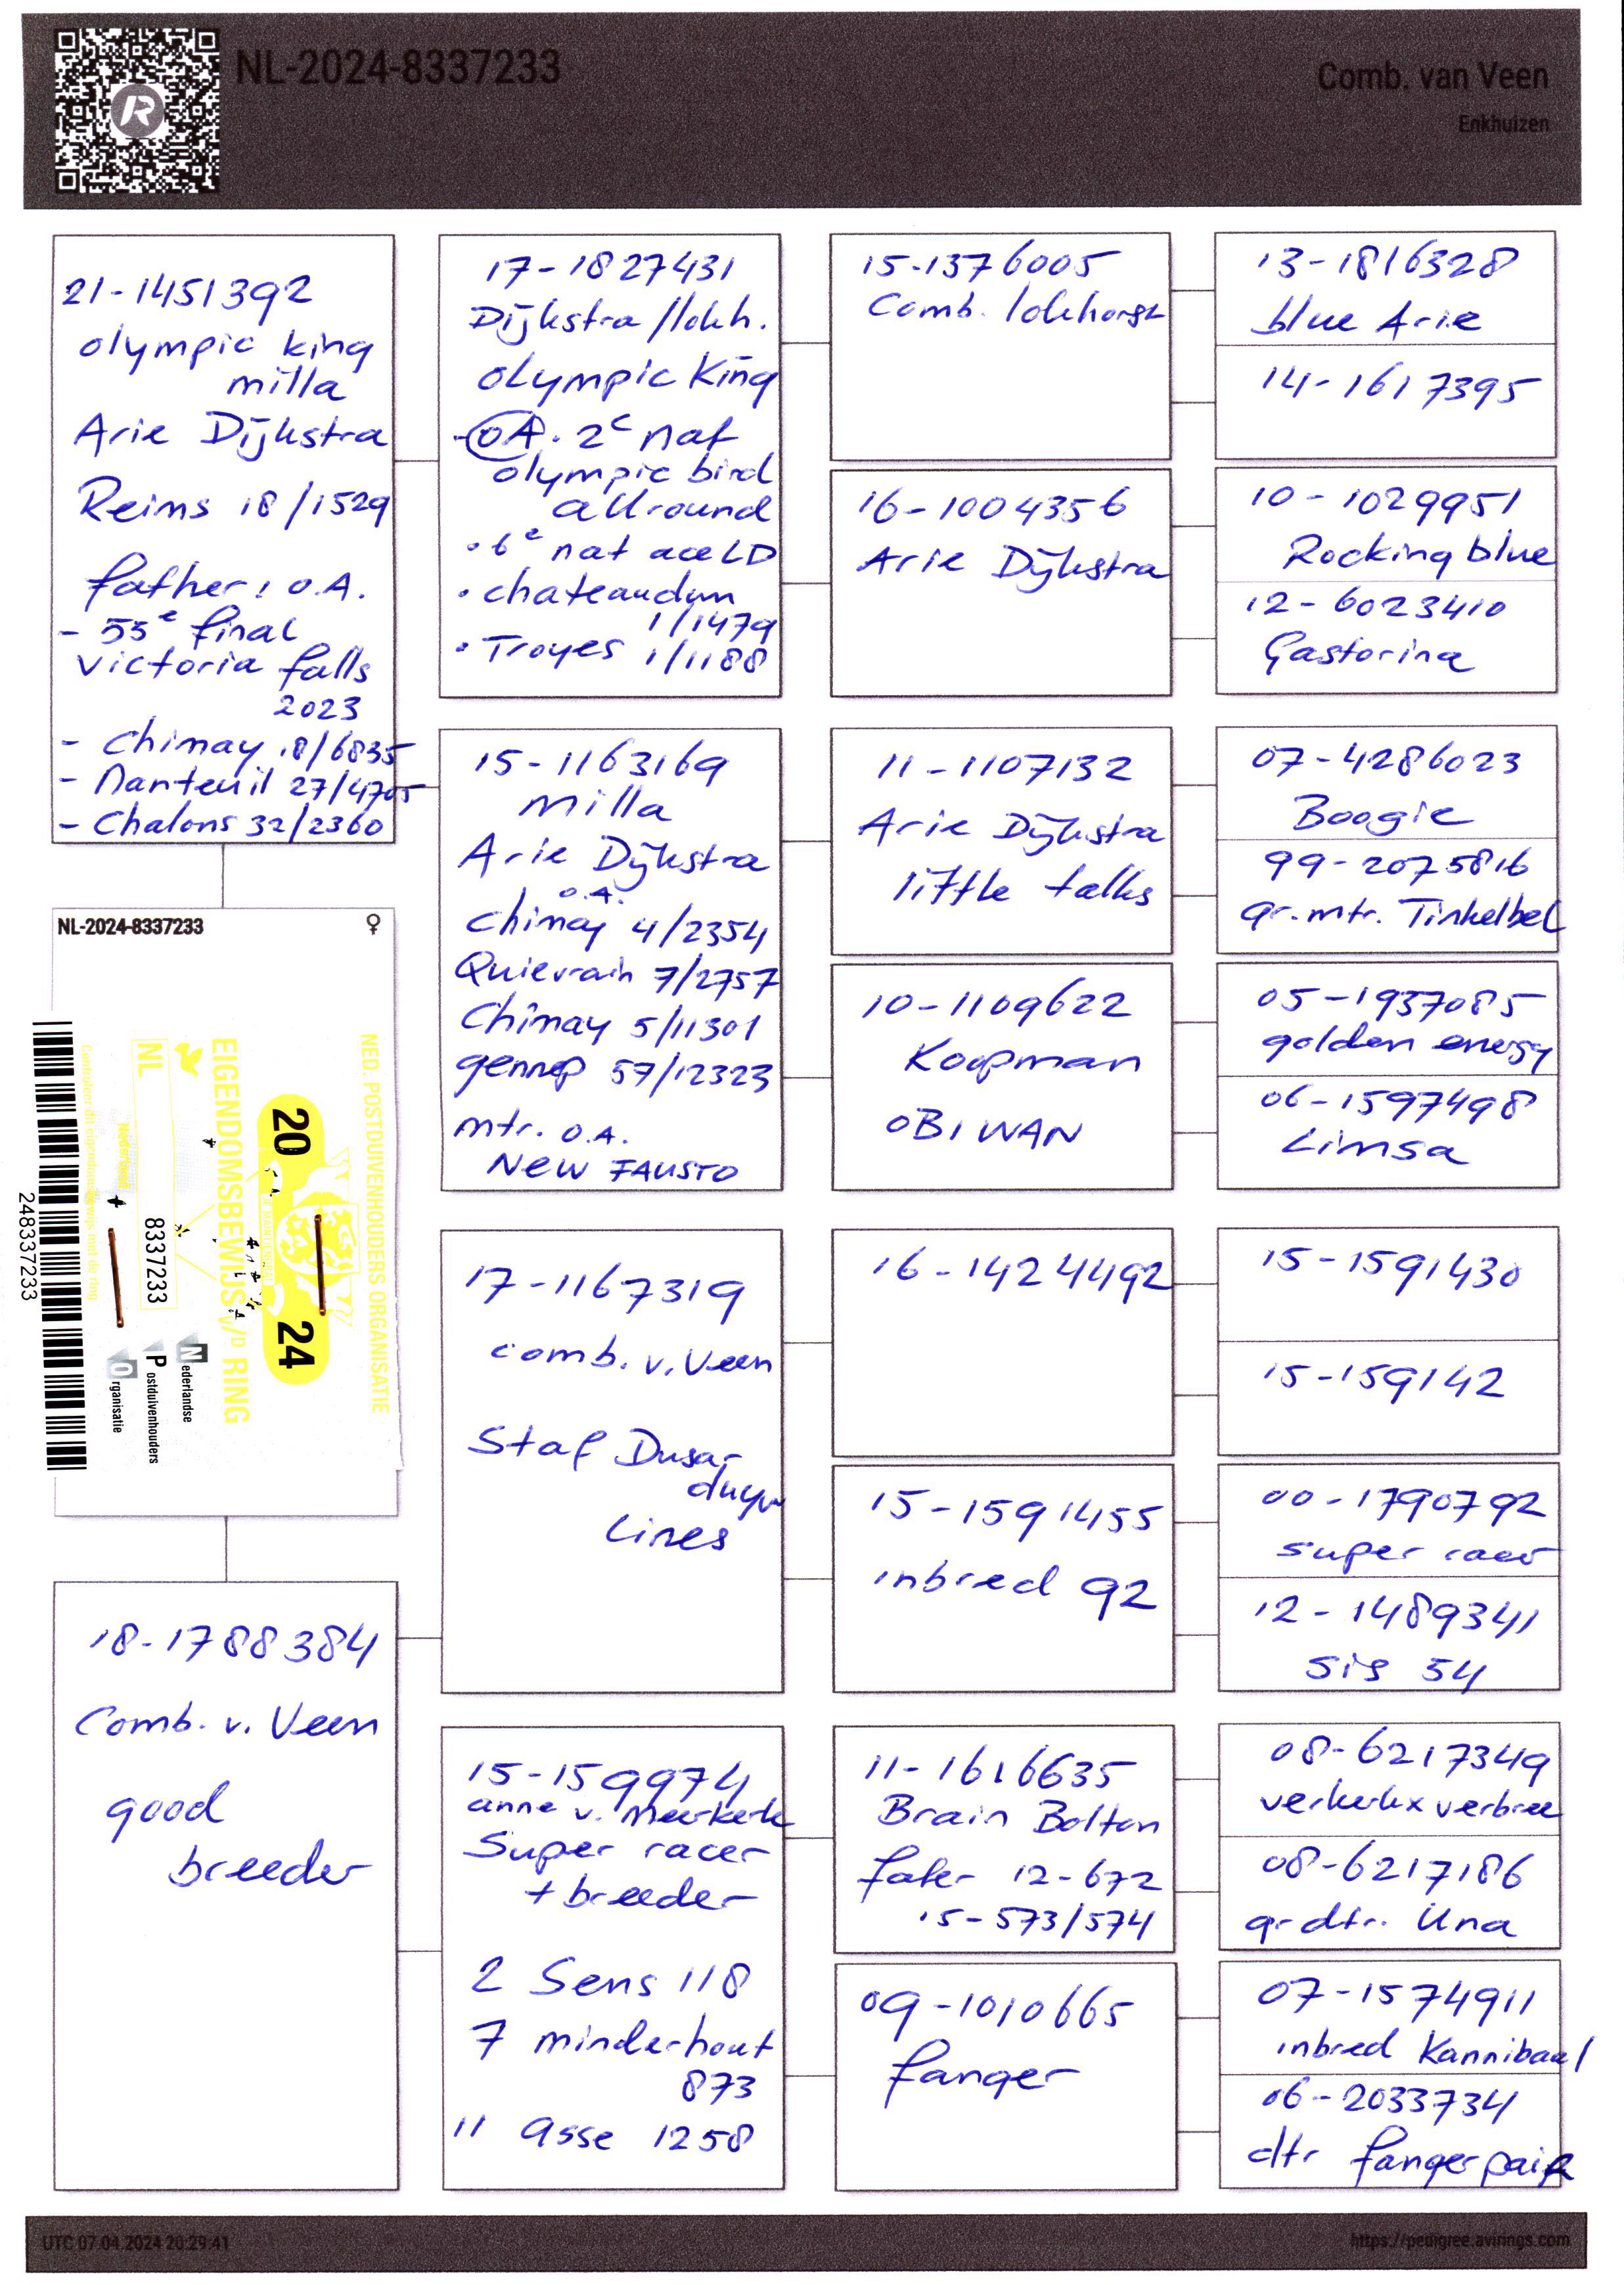 NL-2024-8337233
Comb. van Veen
Enkhuizen
21-1451392
olympic king
milla
Arie Dijkstra
Reims 18/1529
father: O.A.
- 55e final
victoria falls
2023
- Chimay 18/6835
- Nanteuil 27/4705
- Chalons 32/2360
NL-2024-8337233 ♀
NED. POSTDUIVENHOUDERS ORGANISATIE
20 24
EIGENDOMSBEWIJS V/D RING
NL
8337233
Nederland
Controleer dit eigendomsbewijs met de ring
Nederlandse
Postduivenhouders
Organisatie
248337233
18-1788384
Comb. v. Veen
good
breeder
17-1827431
Dijkstra/lokh.
olympic King
- O.A. 2e nat
olympic bird
allround
• 6e nat ace LD
• chateaudun
1/1479
• Troyes 1/1188
15-1163169
milla
Arie Dijkstra
O.A.
chimay 4/2354
Quievrain 7/2757
Chimay 5/11301
gennep 57/12323
mtr. O.A.
NEW FAUSTO
17-1167319
comb. v. Veen
Staf Dusar-
duyv
Lines
15-159974
anne v. Meerkerk
Super racer
+ breeder
2 Sens 118
7 minderhout
873
11 Asse 1258
15-1376005
Comb. lokhorst
16-1004356
Arie Dijkstra
11-1107132
Arie Dijkstra
little talks
10-1109622
Koopman
OBIWAN
16-1424492
15-1591455
inbred 92
11-1616635
Brain Bolton
fater 12-672
15-573/574
09-1010665
fanger
13-1816328
blue Arie
14-1617395
10-1029951
Rocking blue
12-6023410
Gastorina
07-4286023
Boogie
99-2075816
gr.mtr. Tinkelbel
05-1937085
golden energy
06-1597498
Limsa
15-1591430
15-159142
00-1790792
super racer
12-1489341
sis 54
08-6217349
verkerk x verbree
08-6217186
gr dtr. Una
07-1574911
inbred Kannibaal
06-2033734
dtr fangerpair
UTC 07.04.2024 20:29:41
https://pedigree.avirings.com